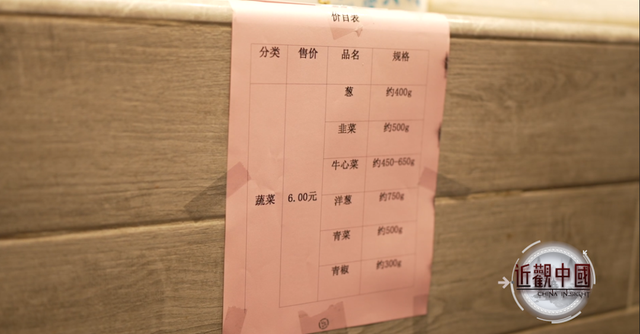 价目表
分类 售价 品名 规格
葱 约400g
韭菜 约500g
牛心菜 约450-650g
蔬菜 6.00元 洋葱 约750g
青菜 约500g
青椒 约300g
近觀中國
CHINA INSIGHT